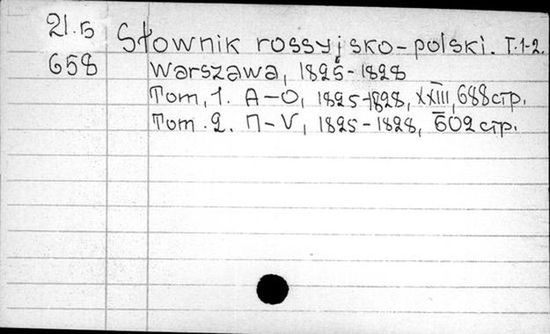 21.5 Słownik rossyjsko-polski. T.1-2.
658 Warszawa, 1825-1828
Tom, 1. А-О, 1825-1828, XXIII, 688 стр.
Tom. 2. П-V, 1825-1828, 602 стр.